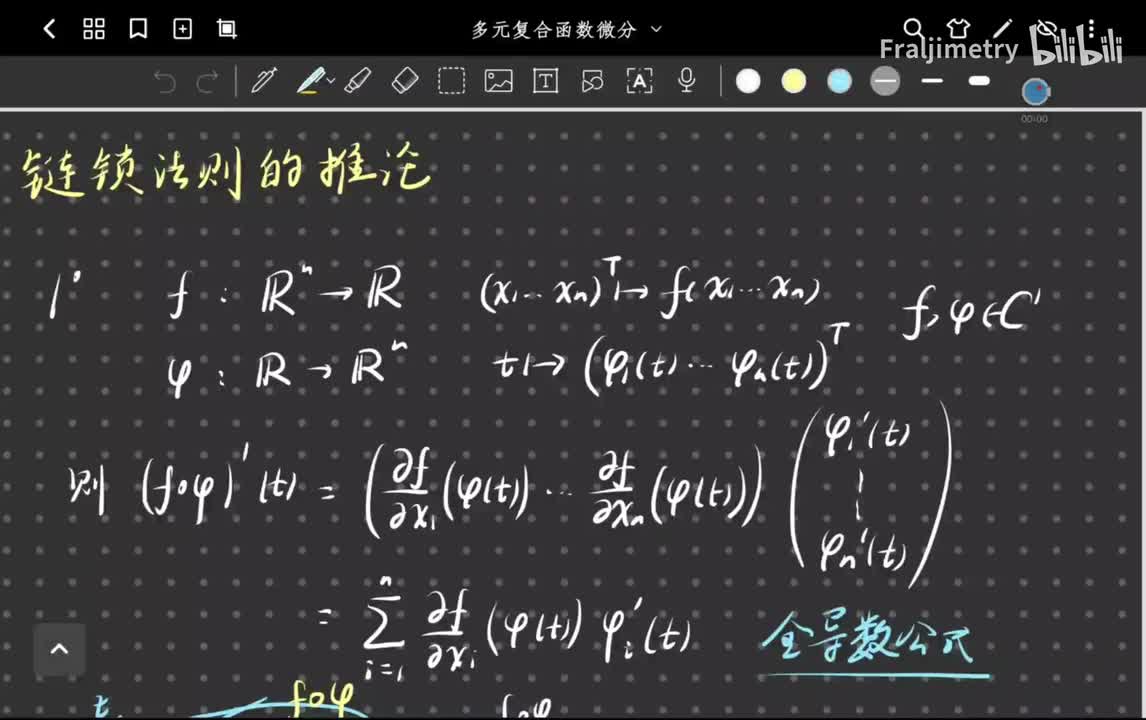 多元复合函数微分
Fraljimetry bilibili
00:00
链锁法则的推论
1° f : ℝⁿ → ℝ (x₁ … xₙ)ᵀ ↦ f(x₁ … xₙ) f, φ ∈ C¹
φ : ℝ → ℝⁿ t ↦ (φ₁(t) … φₙ(t))ᵀ
则 (f∘φ)'(t) = (∂f/∂x₁ (φ(t)) … ∂f/∂xₙ (φ(t))) (φ₁'(t) ⋮ φₙ'(t))
= ∑ᵢ₌₁ⁿ ∂f/∂xᵢ (φ(t)) φᵢ'(t) 全导数公式
t f∘φ f∘φ